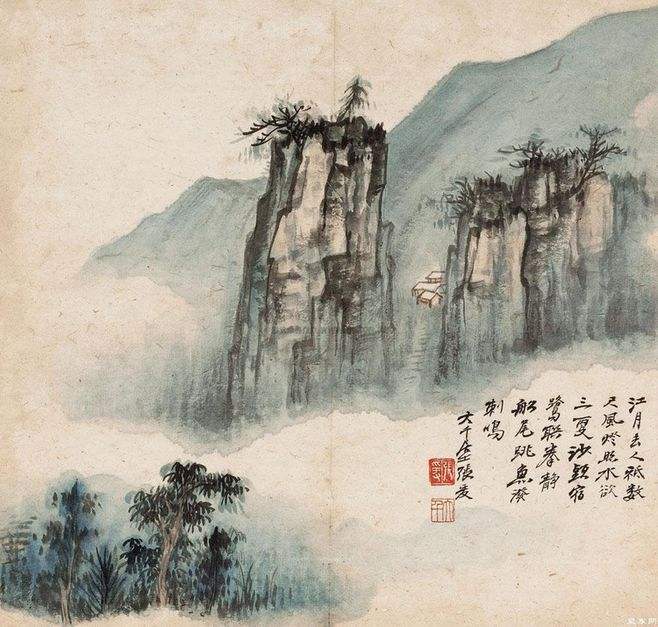 江月去人祇數
尺風燈照水欲
三更沙頭宿
鷺聯拳靜
船尾跳魚潑
剌鳴
大千張爰